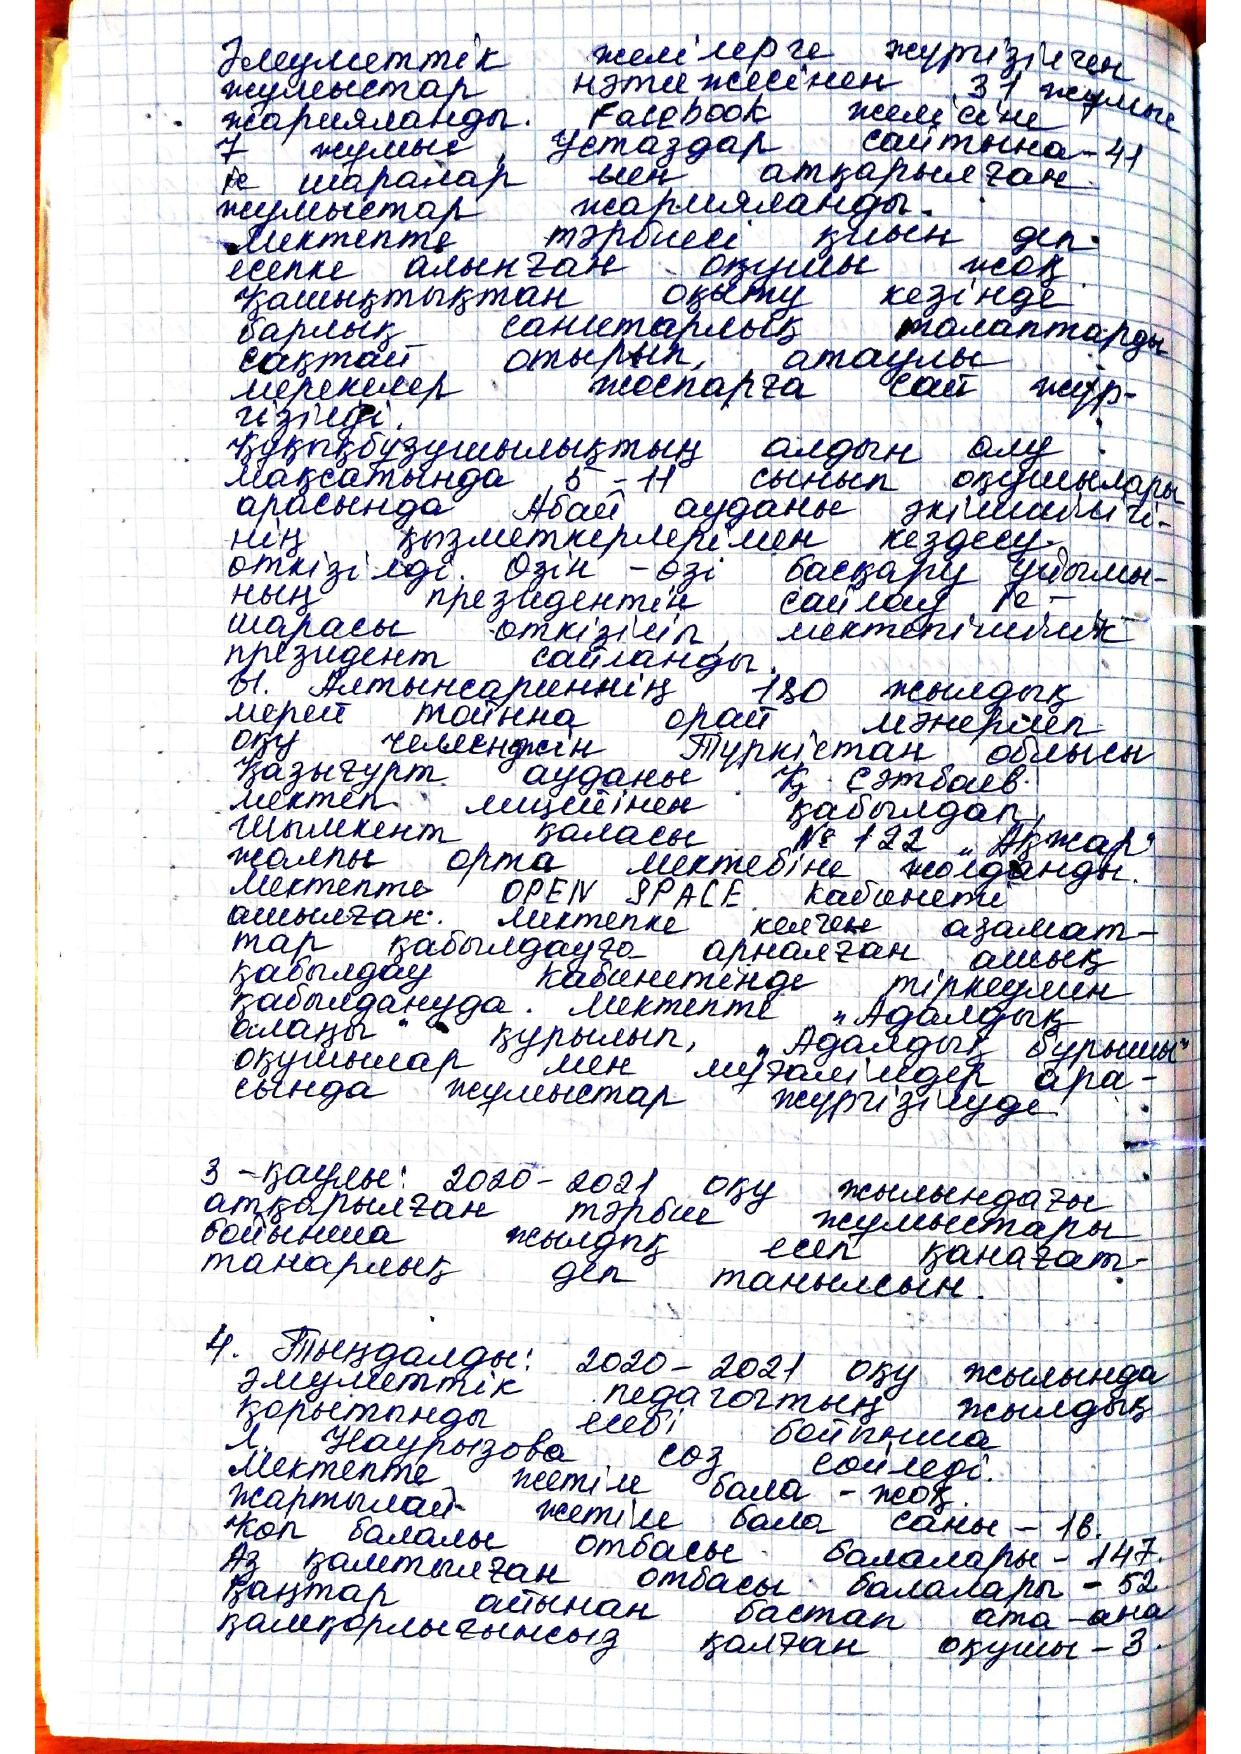 Әлеуметтік желілерге жүргізілген
жұмыстар нәтижесінен 31 жұмыс
жарияланды. Facebook желісіне
7 жұмыс, Ұстаздар сайтына - 41
іс шаралар мен атқарылған
жұмыстар жарияланды.
Мектепте тәрбиесі қиын деп
есепке алынған оқушы жоқ
Қашықтықтан оқыту кезінде
барлық санитарлық талаптарды
сақтай отырып, атаулы
мерекелер жоспарға сай жүр-
гізілді.
Құқықбұзушылықтың алдын алу
мақсатында 5-11 сынып оқушылары
арасында Абай ауданы әкімшілігі-
нің қызметкерлерімен кездесу
өткізілді. Өзін-өзі басқару ұйымы-
ның президентін сайлау іс-
шарасы өткізіліп, мектепішілік
президент сайланды.
Ы. Алтынсариннің 180 жылдық
мерей тойына орай мәнерлеп
оқу челленджін Түркістан облысы
Қазығұрт ауданы Қ. Сәтбаев
мектеп лицейінен қабылдап,
Шымкент қаласы № 122 „Ақжар"
жалпы орта мектебіне жолданды.
Мектепте OPEN SPACE кабинеті
ашылған. Мектепке келген азамат-
тар қабылдауға арналған ашық
қабылдау кабинетінде тіркеумен
қабылдануда. Мектепте „Адалдық
алаңы" құрылып, „Адалдық бұрышы"
оқушылар мен мұғалімдер ара-
сында жұмыстар жүргізілуде
3-қаулы: 2020-2021 оқу жылындағы
атқарылған тәрбие жұмыстары
бойынша жылдық есеп қанағат-
танарлық деп танылсын.
4. Тыңдалды: 2020-2021 оқу жылында
әлеуметтік педагогтың жылдық
қорытынды есебі бойынша
Л. Наурызова сөз сөйледі.
Мектепте жетім бала - жоқ.
Жартылай жетім бала саны - 16.
Көп балалы отбасы балалары - 147.
Аз қамтылған отбасы балалары - 52
Қаңтар айынан бастап ата-ана
қамқорлығынсыз қалған оқушы - 3.